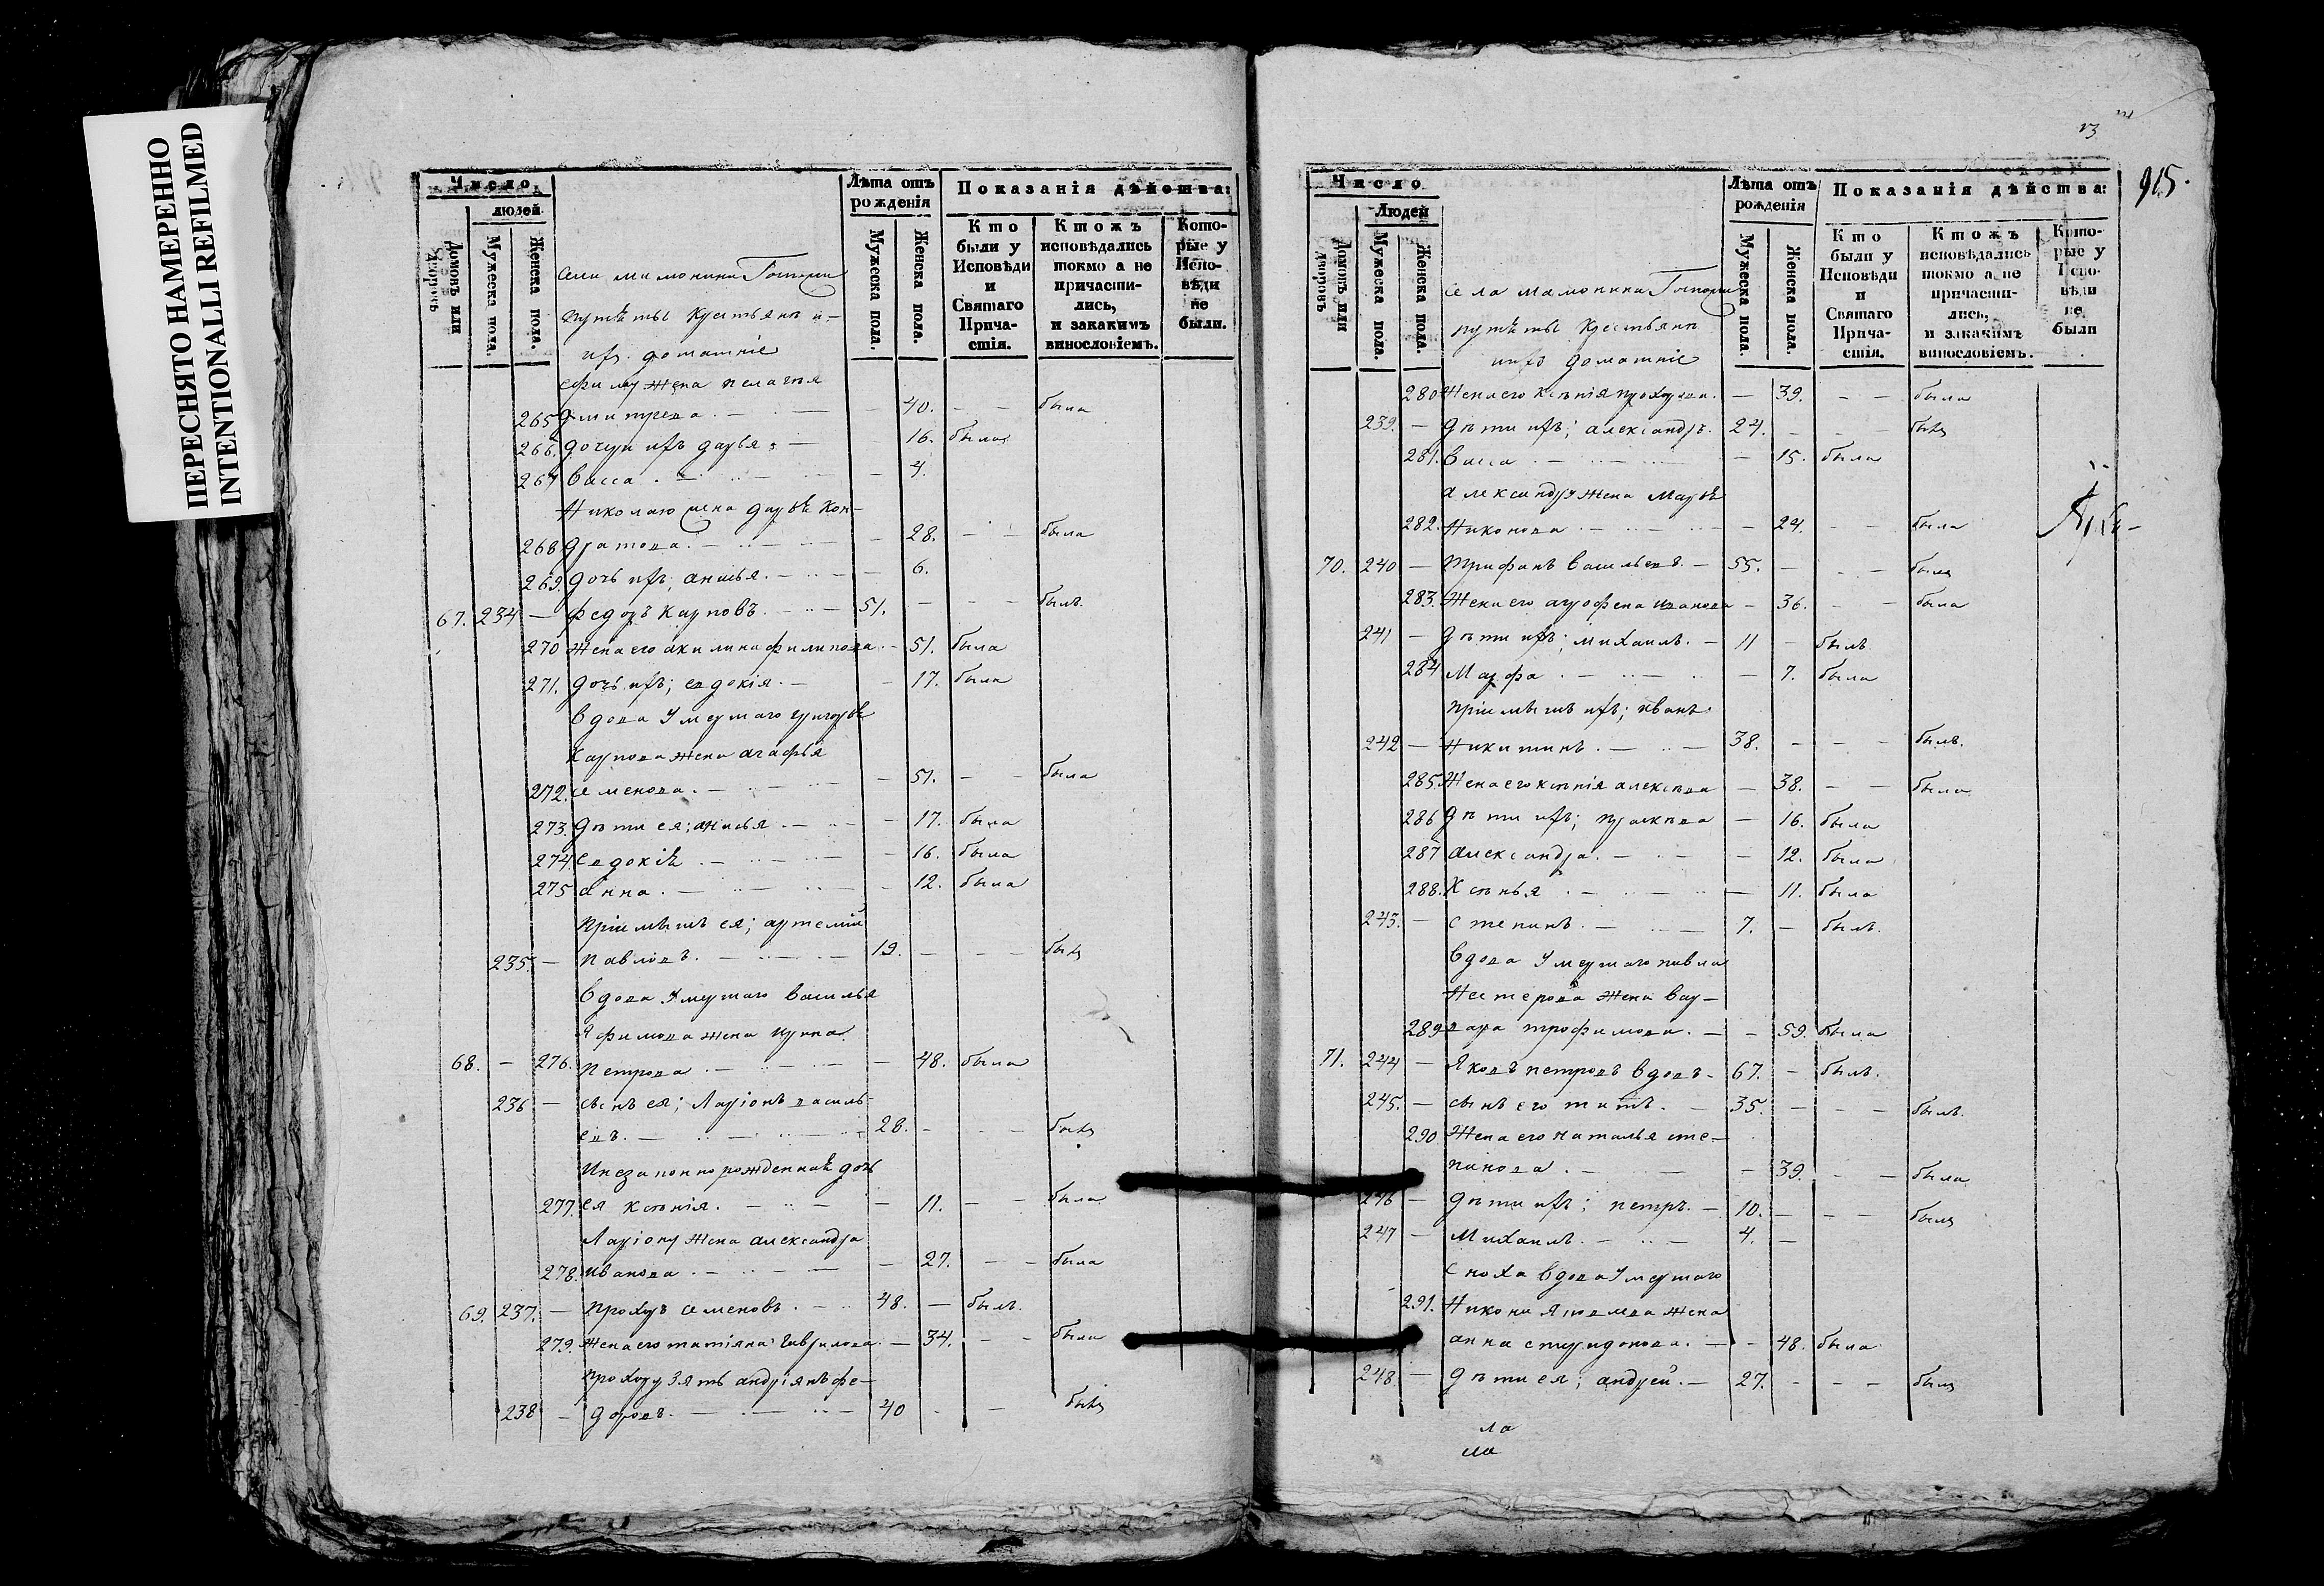 ПЕРЕСНЯТО НАМЕРЕННО
INTENTIONALLI REFILMED
Число
людей
Домовъ или дворовъ
Мужеска пола.
Женска пола.
Лѣта отъ рожденія
Мужеска пола.
Женска пола.
Показанія дѣйства:
Кто были у Исповѣди и Святаго Прича-стія.
Ктожъ исповѣдались токмо а не причасти-лись, и закакимъ винословіемъ.
Кото-рые у Испо-вѣди не были.
села мамонина
крестьяне и
ихъ домашніе
ефиму жена пелагея
265 дмитрева. — 40. — — была
266. дочери ихъ дарья — 16. была
267 васса. — 4.
Николаю жена дарья Кон-
268 дратова. — 28. — — была
269. дочь ихъ анисья. — 6.
67. 234 — федоръ карповъ. — 51. — — — былъ.
270 жена его акилина филипова. — 51. была
271. дочь ихъ; евдокія. — 17. была
вдова умершаго григорья
карпова жена агафья
272. семенова. — 51. — — была
273. дѣти ея; анисья. — 17. была
274. евдокія — 16. была
275 анна. — 12. была
пріимышъ ея; артемій
235. — павловъ. — 19. — — — былъ
вдова умершаго василья
ефимова жена
68. — 276. петрова — 48. была
236 — сынъ ея; Ларіонъ василь-
евъ. — 28. — — — былъ
рожденная дочь
277. ея ксѣнія. — 11. — — была
Ларіону жена александра
278. иванова. — 27. — — была
69. 237. — прохоръ семеновъ. — 48. — былъ.
279. жена его татіяна гаврилова. — 34. — — была
прохору зять андріянъ фе-
238 — доровъ. — 40 — — былъ
915.
Число
Людей
Домовъ или дворовъ
Мужеска пола.
Женска пола.
Лѣта отъ рожденія
Мужеска пола.
Женска пола.
Показанія дѣйства:
Кто были у Исповѣди и Святаго Прича-стія.
Ктожъ исповѣдались токмо а не причасти-лись, и закакимъ винословіемъ.
Кото-рые у Испо-вѣди не были
села мамонина
крестьяне
ихъ домашніе
280 жена его ксѣнія прохорова. — 39. — — была
239. — дѣти ихъ; александръ. 24. — — — былъ
281. васса — 15. была
александру жена марья
282. Никонова — 24. — — была
70. 240 — трифанъ васильевъ. — 55. — — — былъ
283. жена его агрофена иванова — 36. — — была
241 — дѣти ихъ; михаилъ. — 11 — былъ
284 Марфа. — 7. была
пріимышъ ихъ; иванъ
242 — Никитинъ. — 38. — — — былъ.
285. жена его ксѣнія алексѣева — 38. — — была
286 дѣти ихъ; — 16. была
287 александра. — 12. была
288. Ксѣнья — 11. была
243. — степанъ. — 7. — былъ.
вдова умершаго павла
Нестерова жена вар-
289 вара трофимова. — 59. была
71. 244 — Яковъ петровъ вдовъ. 67. — былъ.
245. — сынъ его титъ. — 35. — — — былъ.
290 жена его наталья сте-
панова. — 39. — — была
246 — дѣти ихъ; петръ. — 10. — — — былъ
247 — Михаилъ. — 4. —
сноха вдова умершаго
291. Никона Яковлева жена
анна спиридонова. — 48. была
248 — дѣти ея; андрей. — 27. — — — былъ
ла
ла